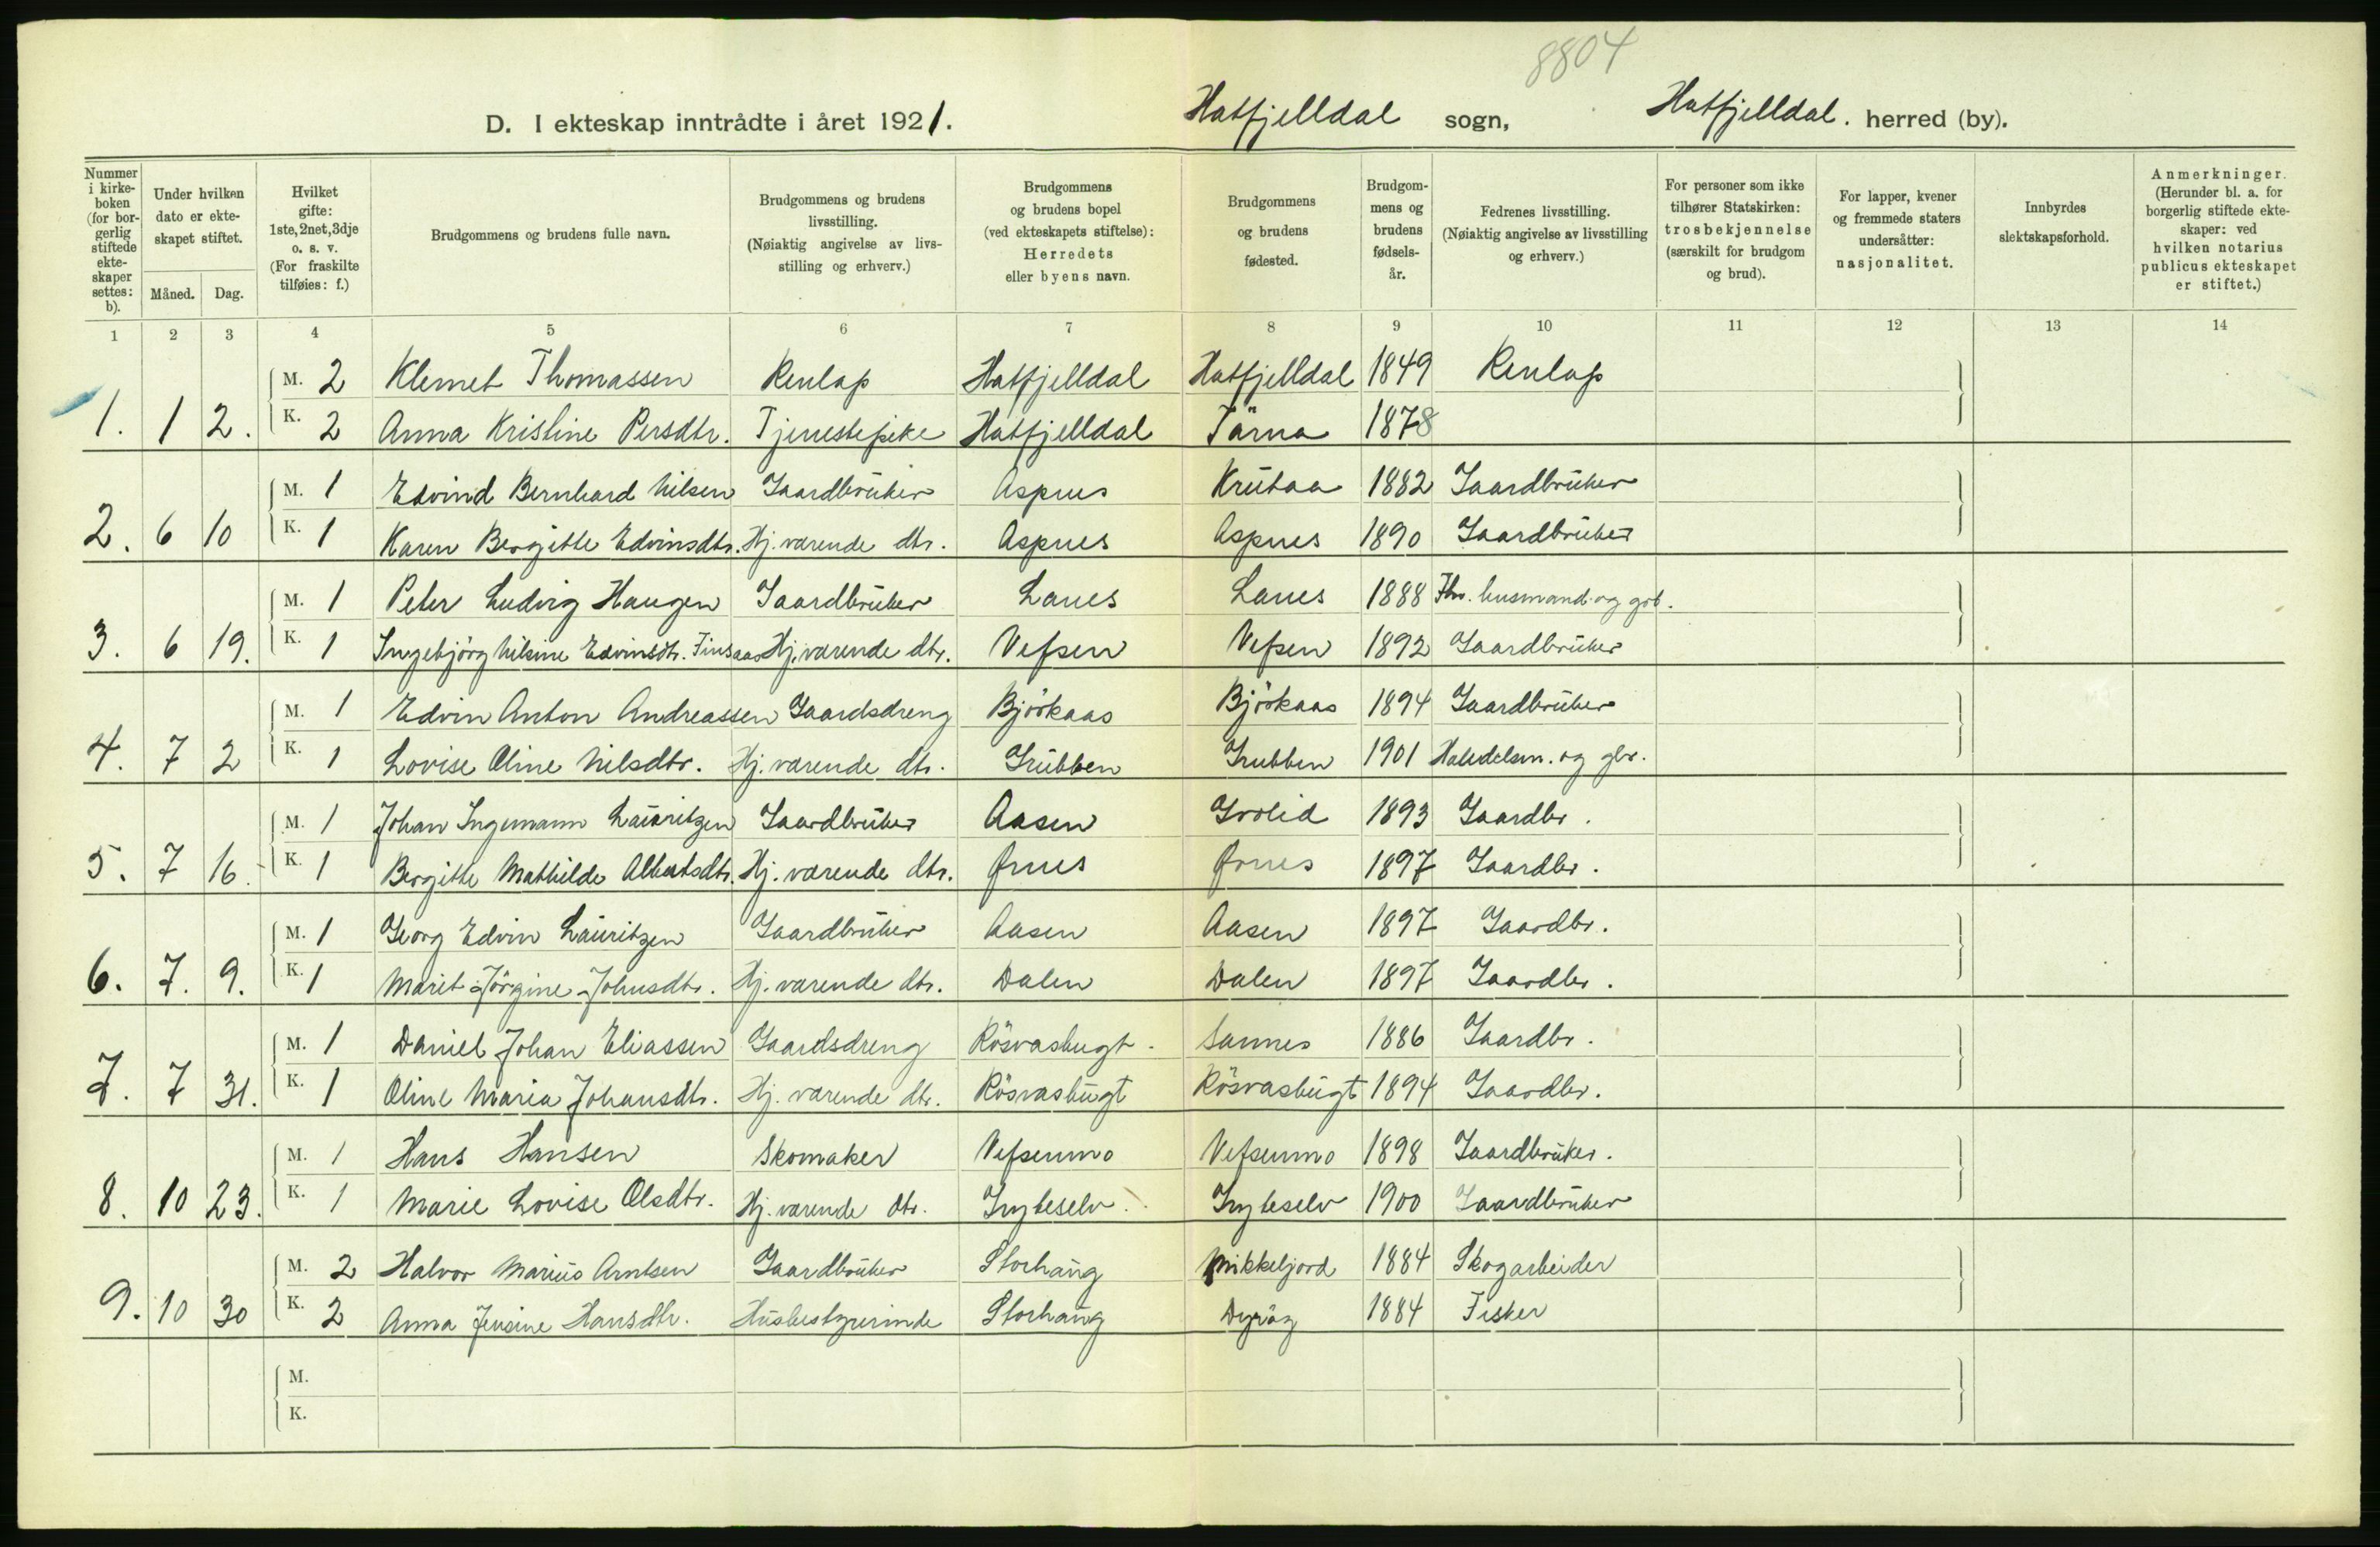 8804
D. I ekteskap inntrådte i året 1921. Hatfjelldal sogn, Hatfjelldal. herred (by).
Nummer i kirke-boken (for bor-gerlig stiftede ekte-skaper settes: b).
Under hvilken dato er ekte-skapet stiftet.
Måned. Dag.
Hvilket gifte: 1ste, 2net, 3dje o. s. v. (For fraskilte tilføies: f.)
Brudgommens og brudens fulle navn.
Brudgommens og brudens livsstilling. (Nøiaktig angivelse av livs-stilling og erhverv.)
Brudgommens og brudens bopel (ved ekteskapets stiftelse): Herredets eller byens navn.
Brudgommens og brudens fødested.
Brudgom-mens og brudens fødsels-år.
Fedrenes livsstilling. (Nøiaktig angivelse av livsstilling og erhverv.)
For personer som ikke tilhører Statskirken: trosbekjennelse (særskilt for brudgom og brud).
For lapper, kvener og fremmede staters undersåtter: nasjonalitet.
Innbyrdes slektskapsforhold.
Anmerkninger. (Herunder bl. a. for borgerlig stiftede ekte-skaper: ved hvilken notarius publicus ekteskapet er stiftet.)
1 2 3 4 5 6 7 8 9 10 11 12 13 14
M. 2 Klemet Thomassen Renlap Hatfjelldal Hatfjelldal 1849 Renlap
1. 1 2. K. 2 Anna Kristine Persdtr. Tjenestepike Hatfjelldal Tärna 1878
M. 1 Edvind Bernhard Nilsen Gaardbruker Aspnes Krutaa 1882 Gaardbruker
2. 6 10 K. 1 Karen Bergitte Edvinsdtr. Hj. værende dtr. Aspnes Aspnes 1890 Gaardbruker
M. 1 Peter Ludvig Haugen Gaardbruker Lanes Lanes 1888 Fhv. husmand og gbr.
3. 6 19. K. 1 Ingebjörg Nilsine Edvinsdtr. Finsaas Hj. værende dtr. Vefsen Vefsen 1892 Gaardbruker
M. 1 Edvin Anton Andreassen Gaardsdreng Björkaas Björkaas 1894 Gaardbruker
4. 7 2 K. 1 Lovise Oline Nilsdtr. Hj. værende dtr. Grubben Grubben 1901 Handelsm. og gbr.
M. 1 Johan Ingemann Lauritzen Gaardbruker Aasen Grölid 1893 Gaardbr.
5. 7 16. K. 1 Bergitte Mathilde Albertsdtr. Hj. værende dtr. Ørnes Ørnes 1897 Gaardbr.
M. 1 Georg Edvin Lauritzen Gaardbruker Aasen Aasen 1897 Gaardbr.
6. 7. 9. K. 1 Marit Jörgine Johnsdtr. Hj. værende dtr. Dalen Dalen 1897 Gaardbr.
M. 1 Daniel Johan Eliassen Gaardsdreng Rösvasbugt. Sannes 1886 Gaardbr.
7. 7 31. K. 1 Oline Maria Johansdtr. Hj. værende dtr. Rösvasbugt Rösvasbugt 1894 Gaardbr.
M. 1 Hans Hansen Skomaker Vefsenmo Vefsenmo 1898 Gaardbruker.
8. 10 23. K. 1 Marie Lovise Olsdtr. Hj. værende dtr. Gryteselv. Gryteselv 1900 Gaardbruker
M. 2 Halvor Marius Arntsen Gaardbruker Storhaug Mikkeljord 1884 Skogarbeider
9. 10 30 K. 2 Anna Jensine Hansdtr. Husbestyrerinde Storhaug 1884 Fisker
M.
K.